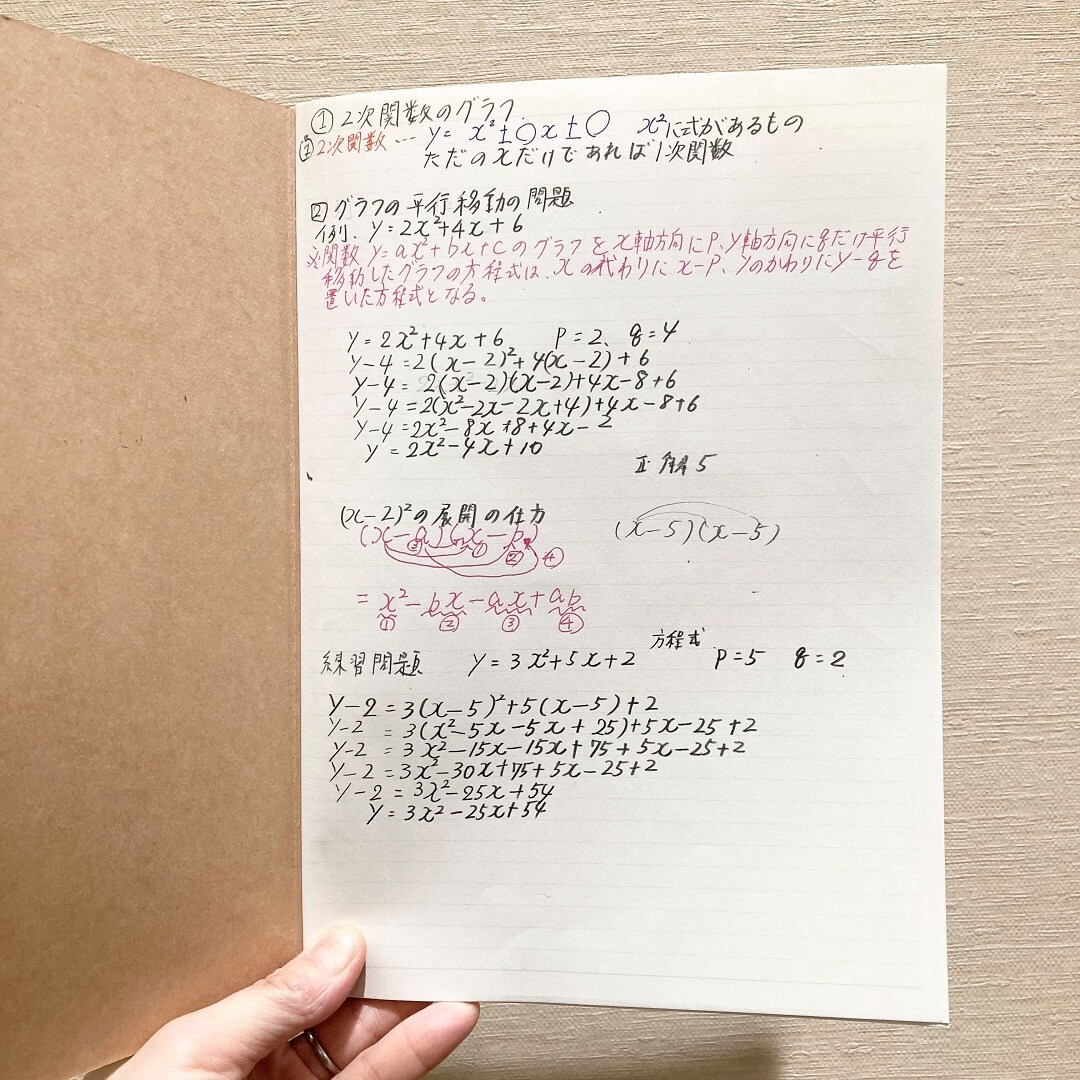 ① 2次関数のグラフ
2次関数… y= x²±○x±○ x²に式があるもの
ただのxだけであれば1次関数
② グラフの平行移動の問題
例、y=2x²+4x+6
※関数 y=ax²+bx+cのグラフをx軸方向にP、y軸方向にqだけ平行
移動したグラフの方程式は、xの代わりにx-P、yのかわりにy-qを
置いた方程式となる。
y=2x²+4x+6 P=2、q=4
y-4=2(x-2)²+4(x-2)+6
y-4=2(x-2)(x-2)+4x-8+6
y-4=2(x²-2x-2x+4)+4x-8+6
y-4=2x²-8x+8+4x-2
y=2x²-4x+10
正解5
(x-2)²の展開の仕方
(x-a)(x-b) (x-5)(x-5)
③ ① ② ④
=x²-bx-ax+ab
① ② ③ ④
方程式
練習問題 y=3x²+5x+2 P=5 q=2
y-2=3(x-5)²+5(x-5)+2
y-2=3(x²-5x-5x+25)+5x-25+2
y-2=3x²-15x-15x+75+5x-25+2
y-2=3x²-30x+75+5x-25+2
y-2=3x²-25x+54
y=3x²-25x+54